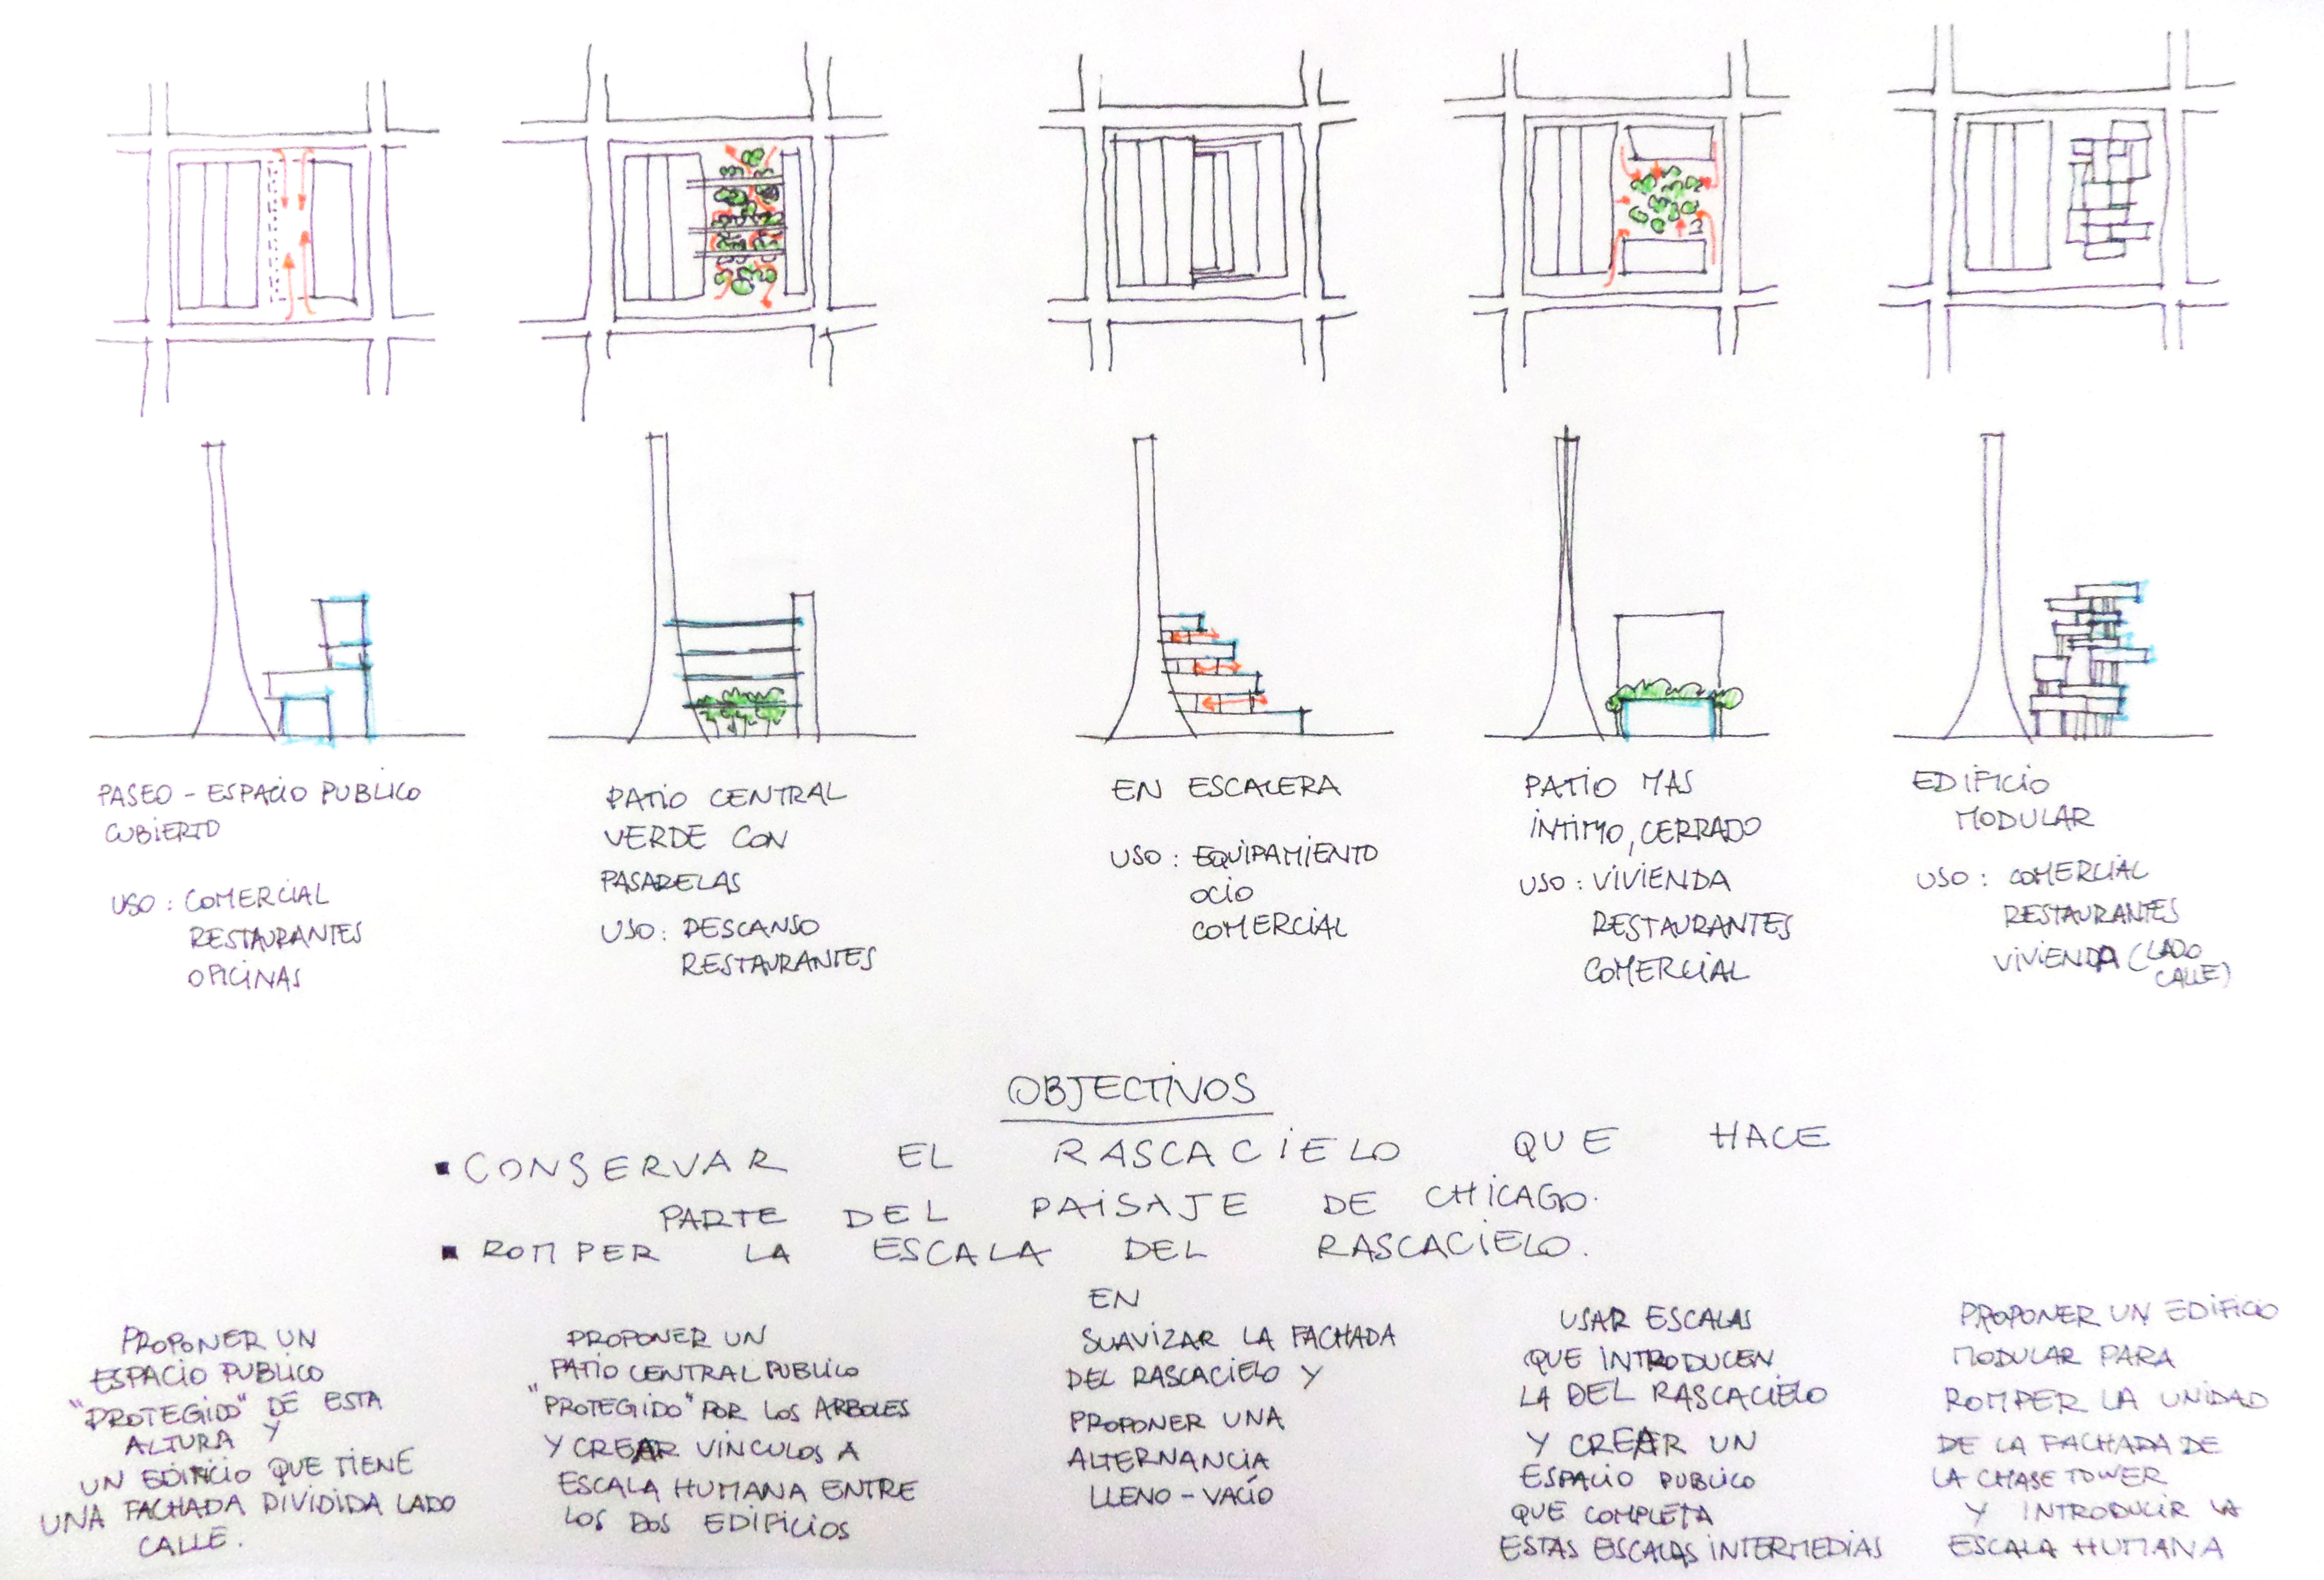 PASEO - ESPACIO PUBLICO
CUBIERTO
USO : COMERCIAL
RESTAURANTES
OFICINAS
PATIO CENTRAL
VERDE CON
PASARELAS
USO : DESCANSO
RESTAURANTES
EN ESCALERA
USO : EQUIPAMIENTO
OCIO
COMERCIAL
PATIO MAS
INTIMO, CERRADO
USO : VIVIENDA
RESTAURANTES
COMERCIAL
EDIFICIO
MODULAR
USO : COMERCIAL
RESTAURANTES
VIVIENDA (LADO
CALLE)
OBJECTIVOS
▪ CONSERVAR EL RASCACIELO QUE HACE
PARTE DEL PAISAJE DE CHICAGO.
▪ ROMPER LA ESCALA DEL RASCACIELO.
EN
PROPONER UN
ESPACIO PUBLICO
"PROTEGIDO" DE ESTA
ALTURA Y
UN EDIFICIO QUE TIENE
UNA FACHADA DIVIDIDA LADO
CALLE.
PROPONER UN
PATIO CENTRAL PUBLICO
"PROTEGIDO" POR LOS ARBOLES
Y CREAR VINCULOS A
ESCALA HUMANA ENTRE
LOS DOS EDIFICIOS
SUAVIZAR LA FACHADA
DEL RASCACIELO Y
PROPONER UNA
ALTERNANCIA
LLENO - VACÍO
USAR ESCALAS
QUE INTRODUCEN
LA DEL RASCACIELO
Y CREAR UN
ESPACIO PUBLICO
QUE COMPLETA
ESTAS ESCALAS INTERMEDIAS
PROPONER UN EDIFICIO
MODULAR PARA
ROMPER LA UNIDAD
DE LA FACHADA DE
LA CHASE TOWER
Y INTRODUCIR LA
ESCALA HUMANA